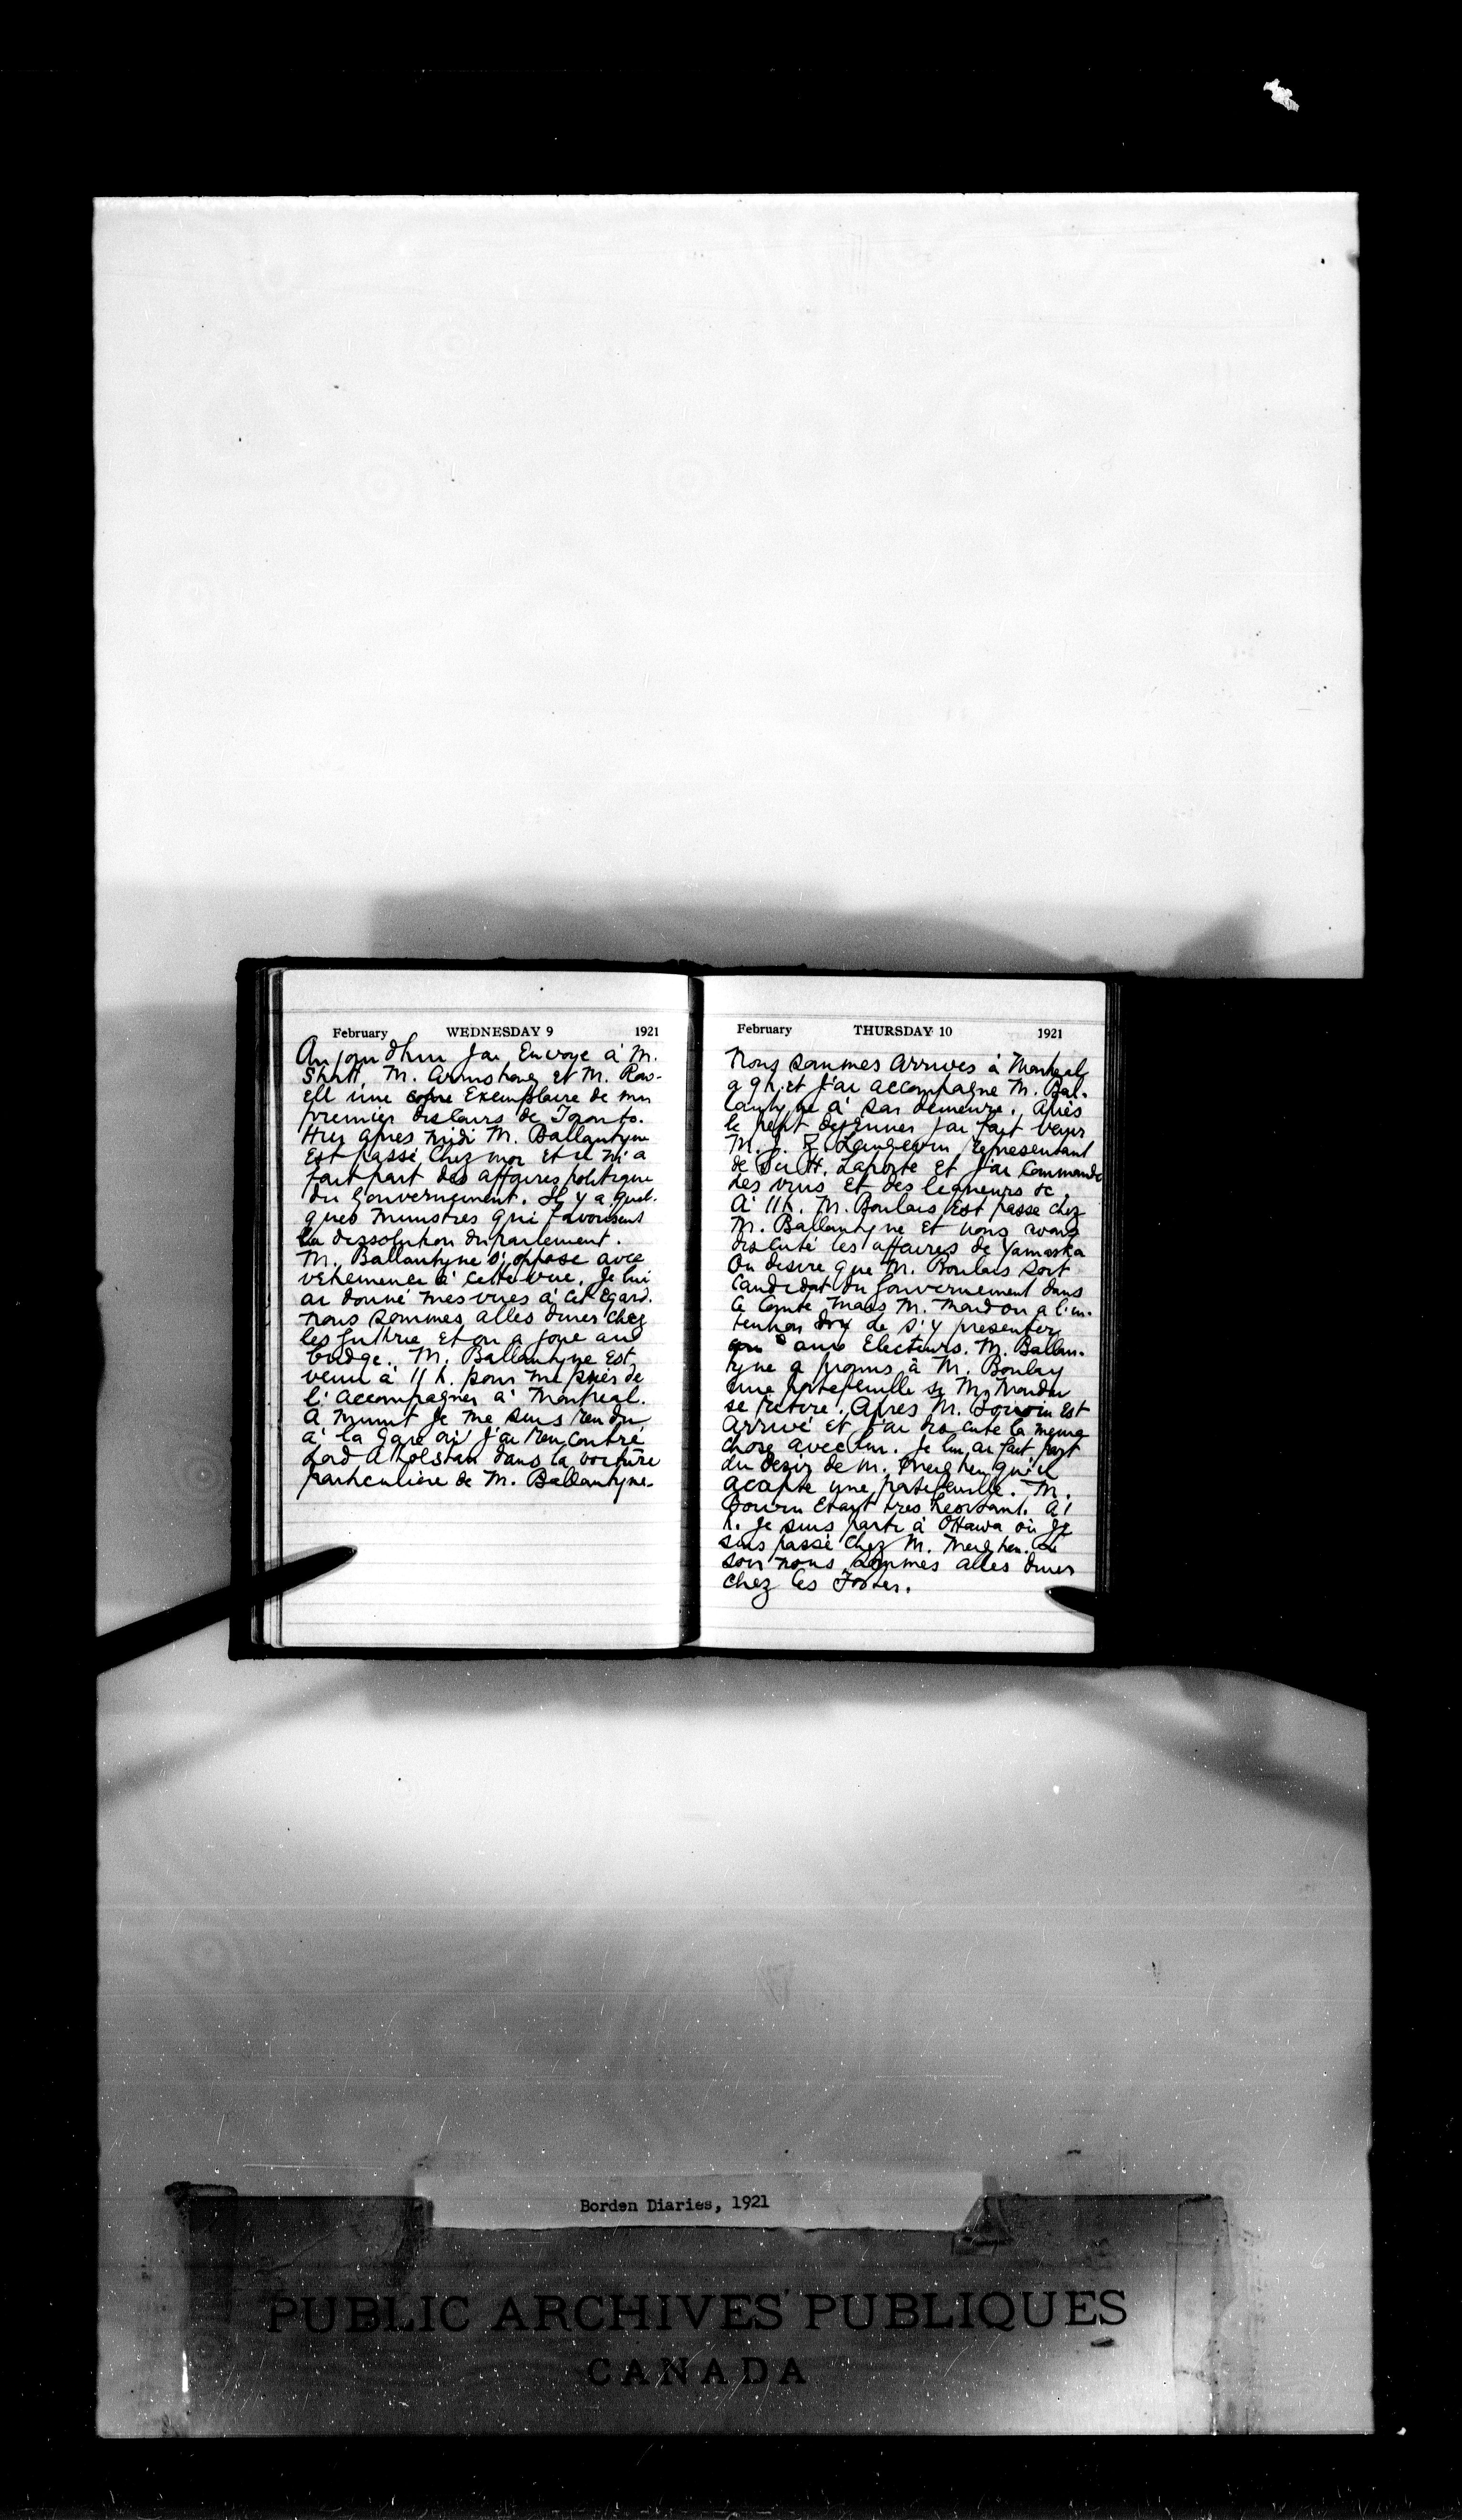 February WEDNESDAY 9 1921
Aujourdhui j'ai Envoye à M.
Shatt, M. Armstrong et M. Row-
ell une copie Exemplaire de mon
premier discours de Toronto.
Hier apres midi M. Ballantyne
Est passé chez moi et il m'a
fait part des affaires politique
du Gouvernement. Il y a quel-
ques ministres qui favorisent
la dissolution du parlement.
M. Ballantyne s'oppose avec
vehemence à cette vue. Je lui
ai donné mes vues à cet egard.
Nous sommes alles diner chez
les Guthrie et on a joue au
bridge. M. Ballantyne Est
venu à 11 h. pour me prier de
l'accompagner à Montreal.
A minuit je me suis rendu
à la Gare où j'ai rencontré
Lord Atholstan dans la voiture
particuliere de M. Ballantyne.
February THURSDAY 10 1921
Nous sommes arrives à Montreal
a 9 h. et j'ai accompagne M. Bal-
lantyne à sa demeure. Après
le petit dejeuner j'ai fait
M. J. Langevin, representant
de H. Laporte et j'ai commandé
des vins et des liqueurs &c.
A 11 h. M. Boulais Est passe chez
M. Ballantyne et nous avons
discuté les affaires de Yamaska
On desire que M. Boulais soit
Candidat du Gouvernement dans
le Comté mais M. Mondou a l'in-
tention de s'y presenter
aux Electeurs. M. Ballan-
tyne a promis à M. Boulay
une portefeuille si M. Mondou
se retire. Apres M. Bouvin Est
Arrivé et j'ai discute la meme
chose avec lui. Je lui ai fait part
du desir de M. Meighen qu'il
accepte une portefeuille. M.
Bouvin Etait tres hesitant. A 1
h. je suis parti à Ottawa où je
suis passé chez M. Meighen. Ce
soir nous sommes alles diner
chez les Foster.
Borden Diaries, 1921
PUBLIC ARCHIVES PUBLIQUES
CANADA